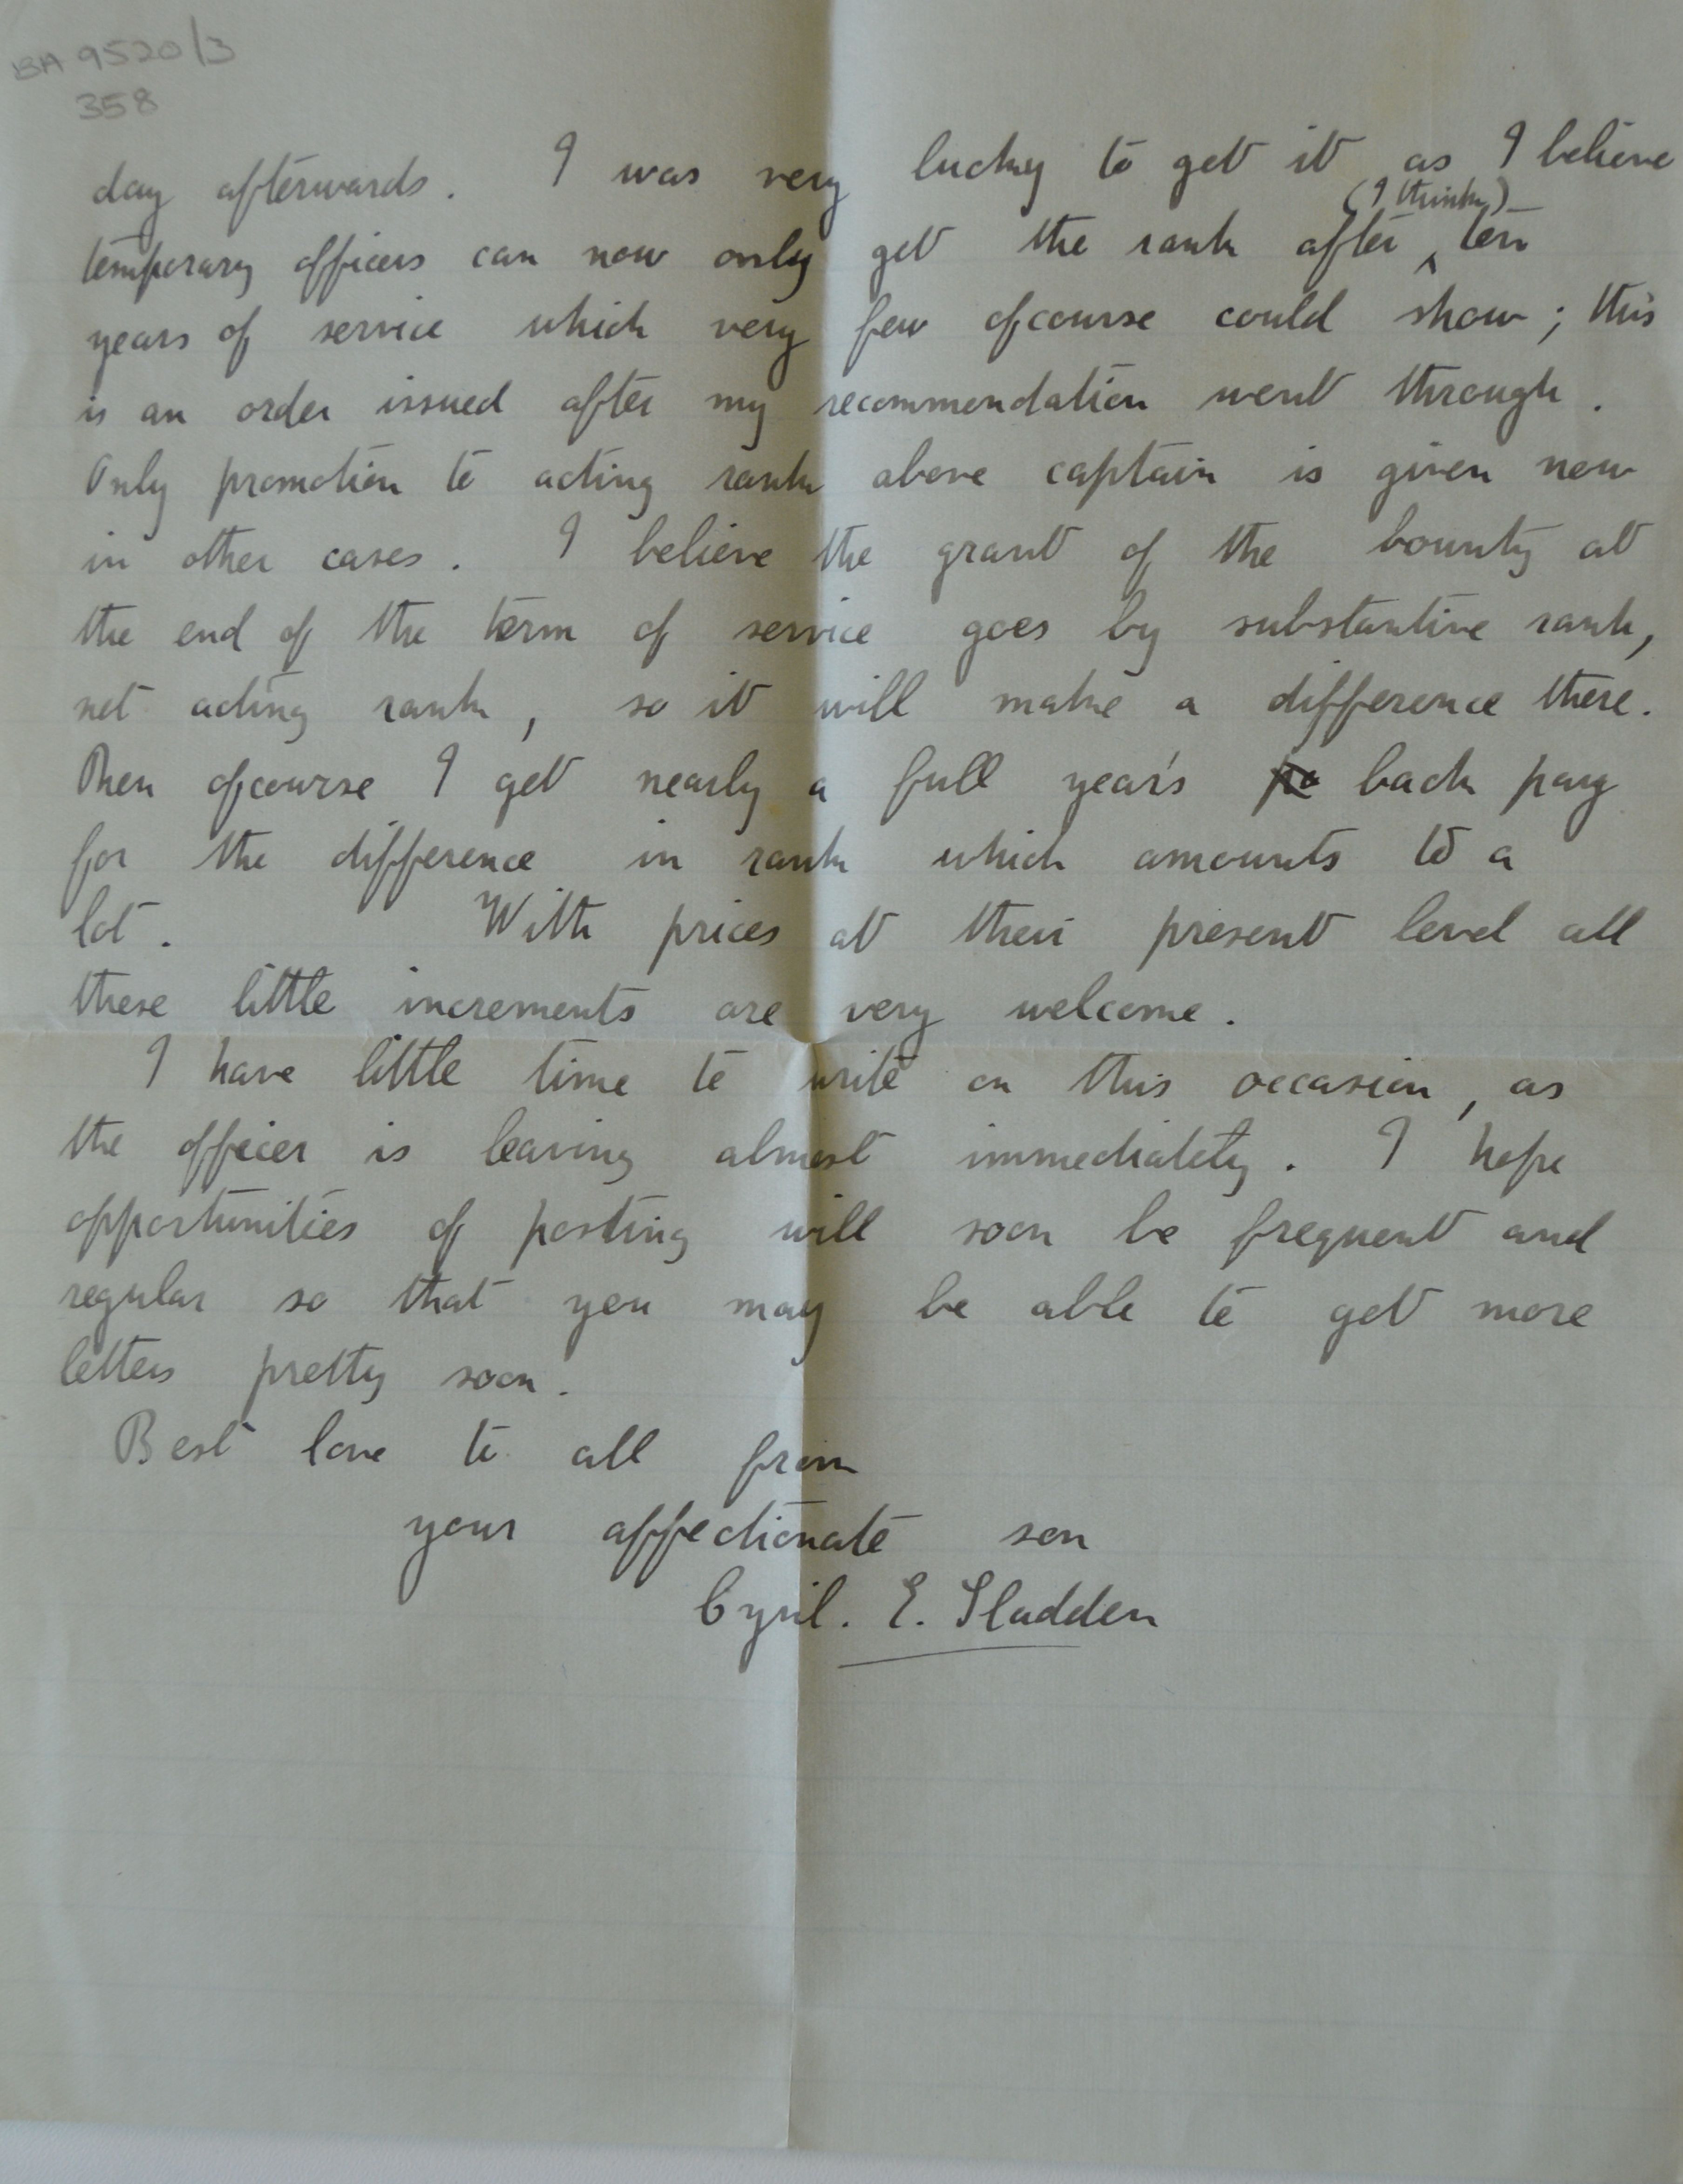 BA 9520/3
358
day afterwards. I was very lucky to get it as I believe
(I think)
temporary officers can now only get the rank after ^ ten
years of service which very few ofcourse could show; this
is an order issued after my recommendation went through.
Only promotion to acting rank above captain is given now
in other cases. I believe the grant of the bounty at
the end of the term of service goes by substantive rank,
not acting rank, so it will make a difference there.
Then ofcourse I get nearly a full year's pa back pay
for the difference in rank which amounts to a
lot. With prices at their present level all
these little increments are very welcome.
I have little time to write on this occasion, as
the officer is leaving almost immediately. I hope
opportunities of posting will soon be frequent and
regular so that you may be able to get more
letters pretty soon.
Best love to all from
your affectionate son
Cyril. E. Sladden